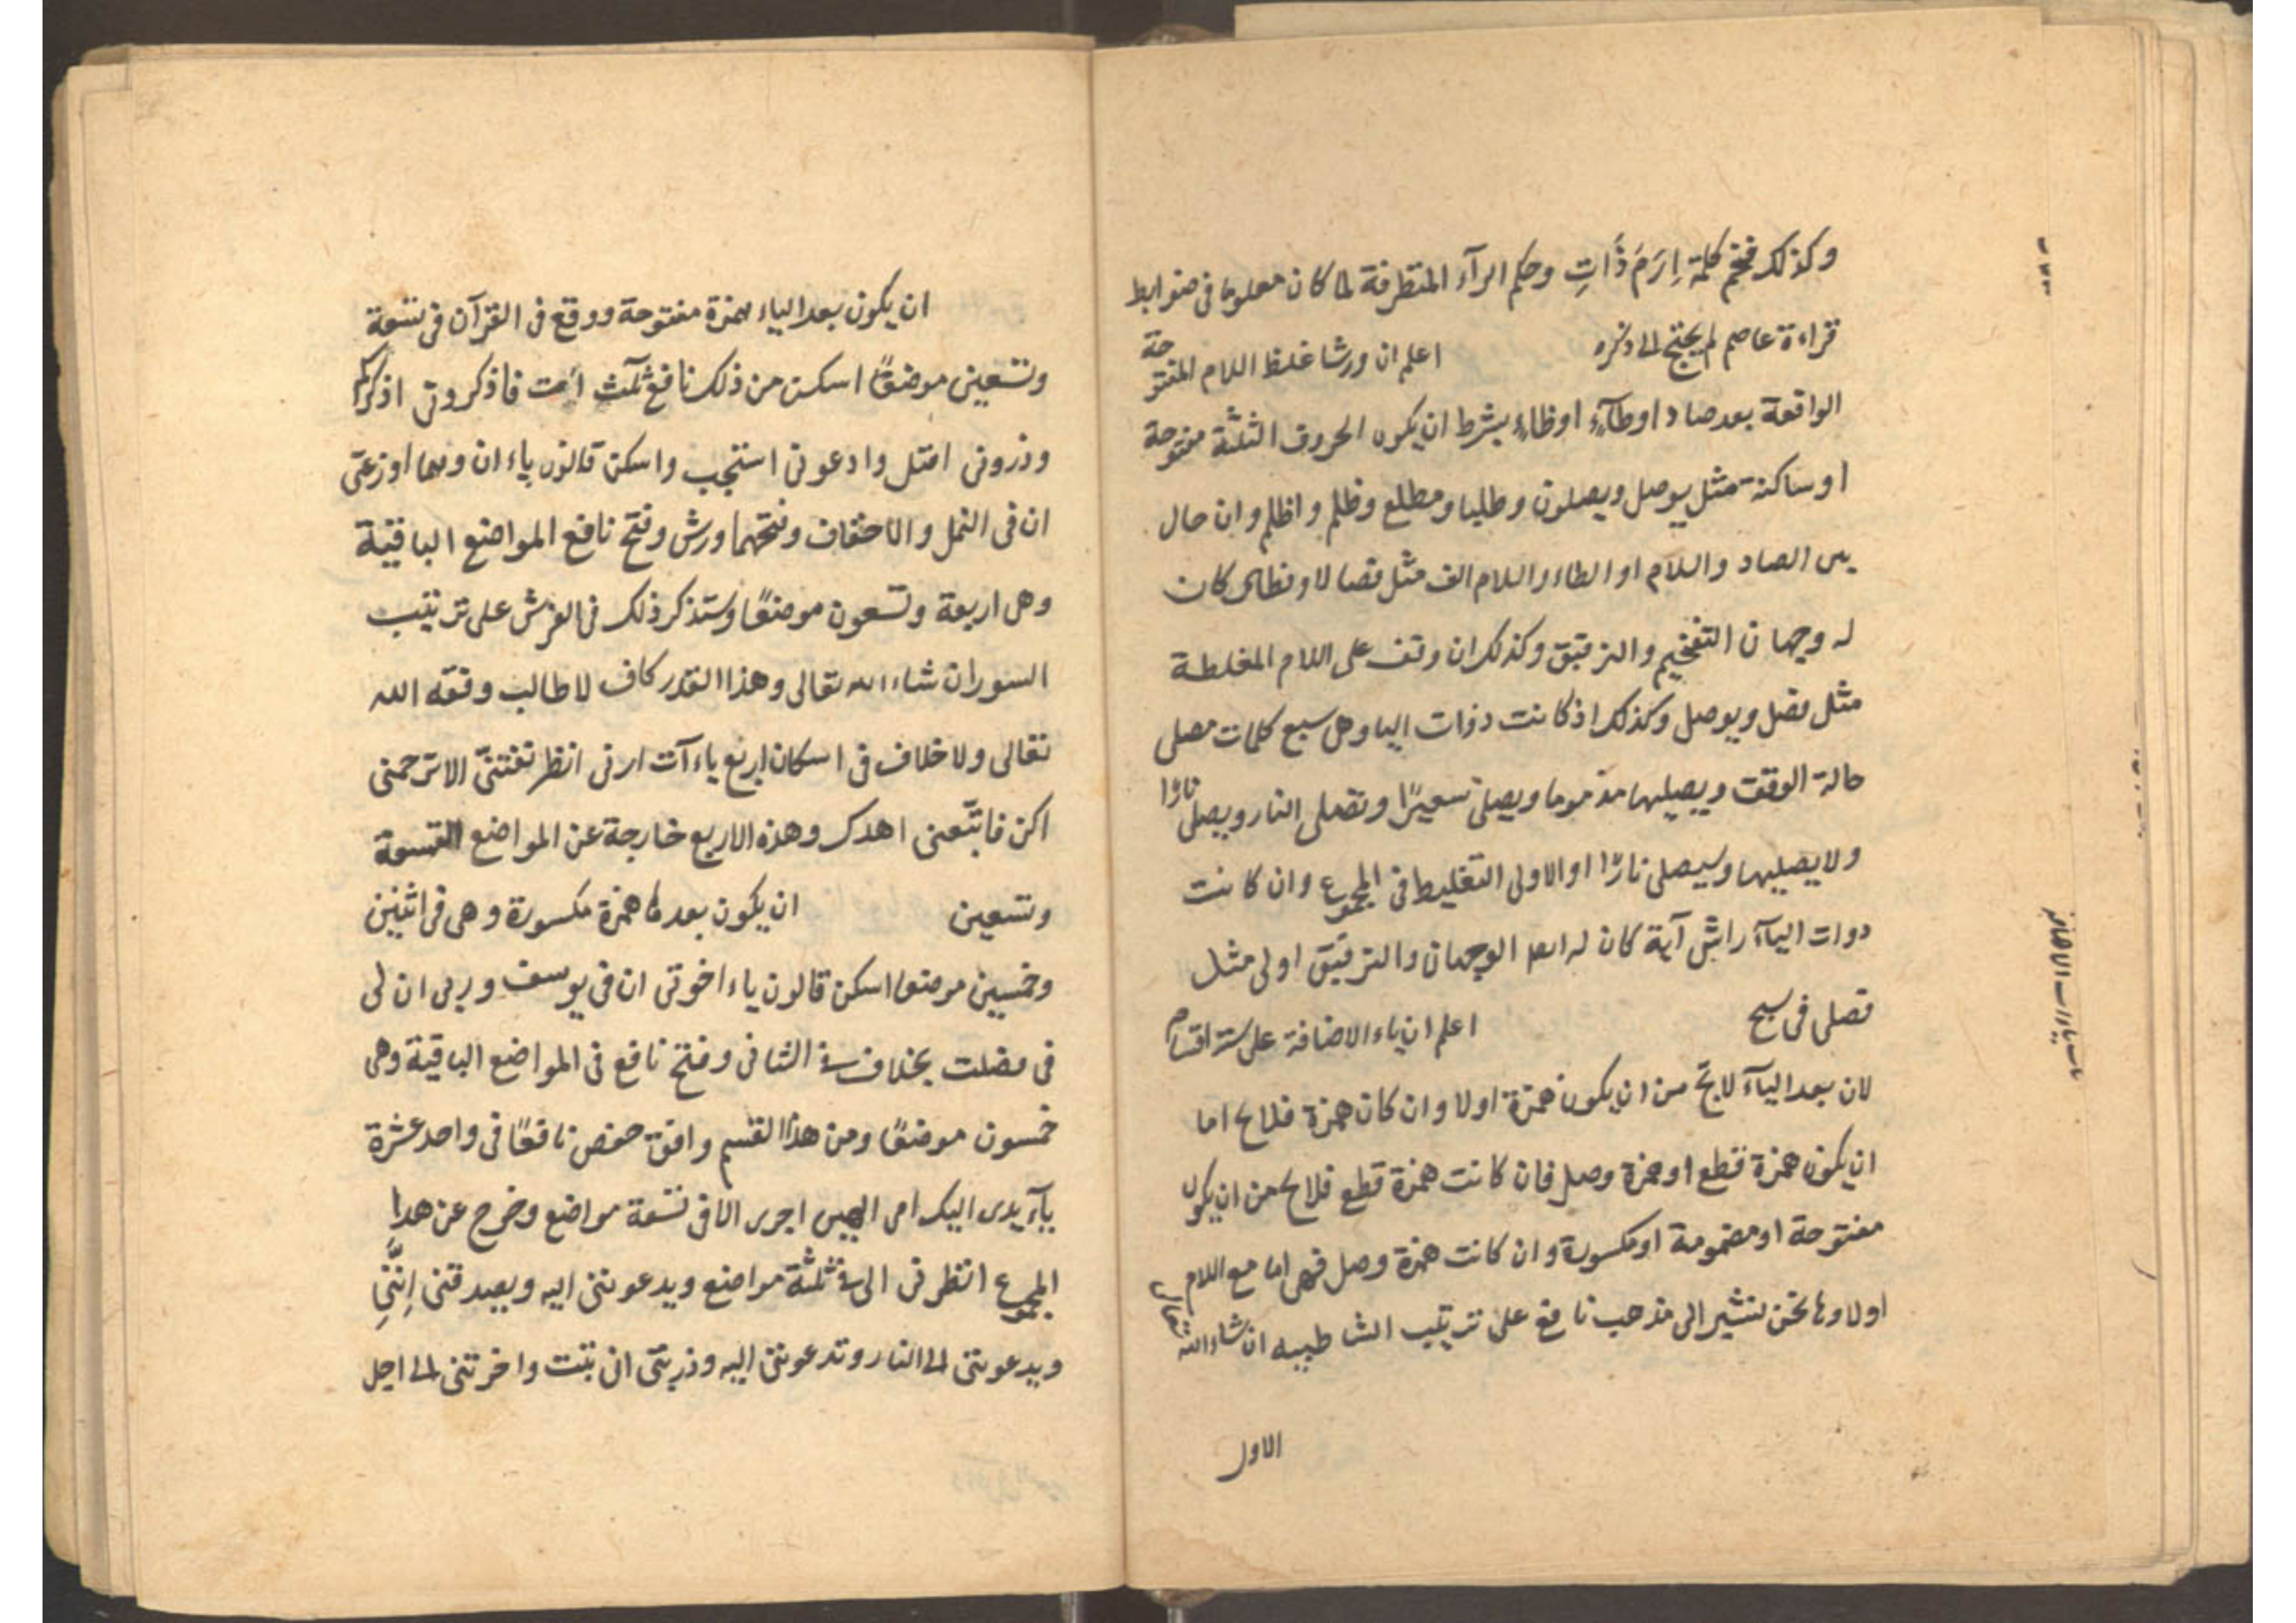 وكذلك فخم كلمة اِرَمَ ذَاتِ وحكم الرآء المتطرفة لما كان معلوما فى ضوابط
قراءة عاصم لم يحتج الى ذكره اعلم ان ورشا غلظ اللام المفتوحة
الواقعة بعد صاد اوطآء اوظاء بشرط ان يكون الحروف الثلثة مفتوحة
او ساكنة مثل يوصل ويصلون وطلبا ومطلع وظلم واظلم وان حال
بين الصاد واللام او الطاء واللام الف مثل فصالا وفطال كان
له وجهان التفخيم والترقيق وكذلك ان وقف على اللام المغلطة
مثل فصل ويوصل وكذلك اذ كانت ذوات اليا وهى سبع كلمات مصلى
حالة الوقف ويصليها مذموما ويصلى سعيرًا وتصلى النار ويصلى نارا
ولا يصليها وسيصلى نارًا والاولى التغليظ فى المجموع وان كانت
دوات اليآء راش آية كان له ايضا الوجهان والترقيق اولى مثل
فصلى فى سبح اعلم ان ياء الاضافة على ستة اقسام
لان بعد اليآء لايخ من ان يكون همزة اولا وان كان همزة فلا يخ اما
ان يكون همزة قطع او همزة وصل فان كانت همزة قطع فلا يخ من ان يكون
مفتوحة او مضمومة او مكسورة وان كانت همزة وصل فهى اما مع اللام
اولا وها نحن نشير الى مذهب نافع على ترتيب الشاطبيه ان شاء الله تعالى
الاول
باب ياءات الاضافة
ان يكون بعد الياء همزة مفتوحة ووقع فى القرآن فى تسعة
وتسعين موضعًا اسكن من ذلك نافع ثلث فاذكرونى اذكركم
وذرونى اقتل وادعونى استجب واسكن قالون ياء ان وهما اوزعنى
ان فى النمل والاحقاف وفتحهما ورش وفتح نافع المواضع الباقية
وهى اربعة وتسعون موضعًا وستذكر ذلك فى الفرش على ترتيب
السور ان شاء الله تعالى وهذا القدر كاف لاطالب وفقه الله
تعالى ولا خلاف فى اسكان اربع ياءآت ارنى انظر تفتنى الا ترحمنى
اكن فاتبعنى اهدك وهذه الاربع خارجة عن المواضع التسعة
وتسعين ان يكون بعدها همزة مكسورة وهى فى اثنين
وخمسين موضعا اسكن قالون ياء اخوتى ان فى يوسف وربى ان لى
فى فصلت بخلاف فى الثانى وفتح نافع فى المواضع الباقية وهى
خمسون موضعًا ومن هذا القسم وافق حفص نافعًا فى واحد عشرة
يآء يدى اليك امى الهين اجرى الا فى تسعة مواضع وخرج عن هذا
المجموع انظرنى الى فى ثلثة مواضع ويدعوننى اليه ويصدقنى اِنّنِى
ويدعوننى الى النار وتدعوننى اليه وذريتى ان تبت واخرتنى الى اجل